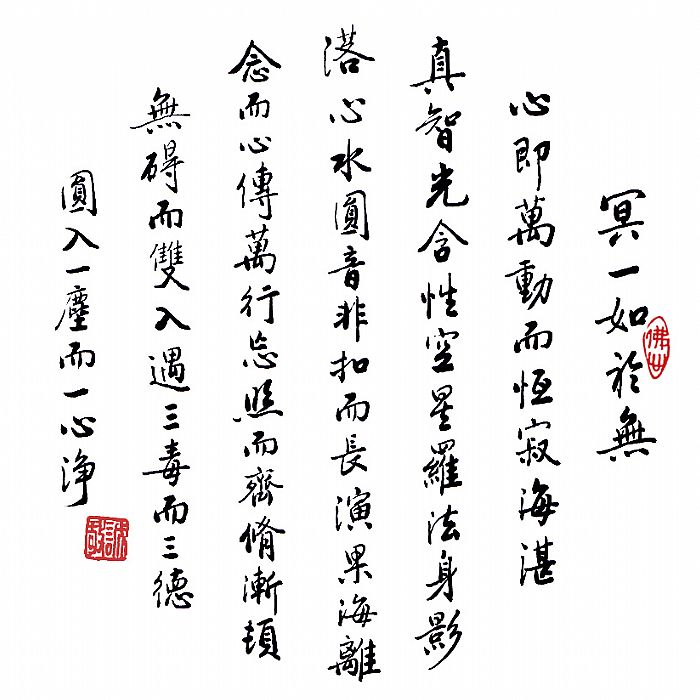 冥一如於無
心即萬動而恆寂海湛
真智光含性空星羅法身影
落心水圓音非扣而長演果海離
念而心傳萬行忘照而齊脩漸頓
無碍而雙入遇三毒而三德
圓入一塵而一心淨
佛世